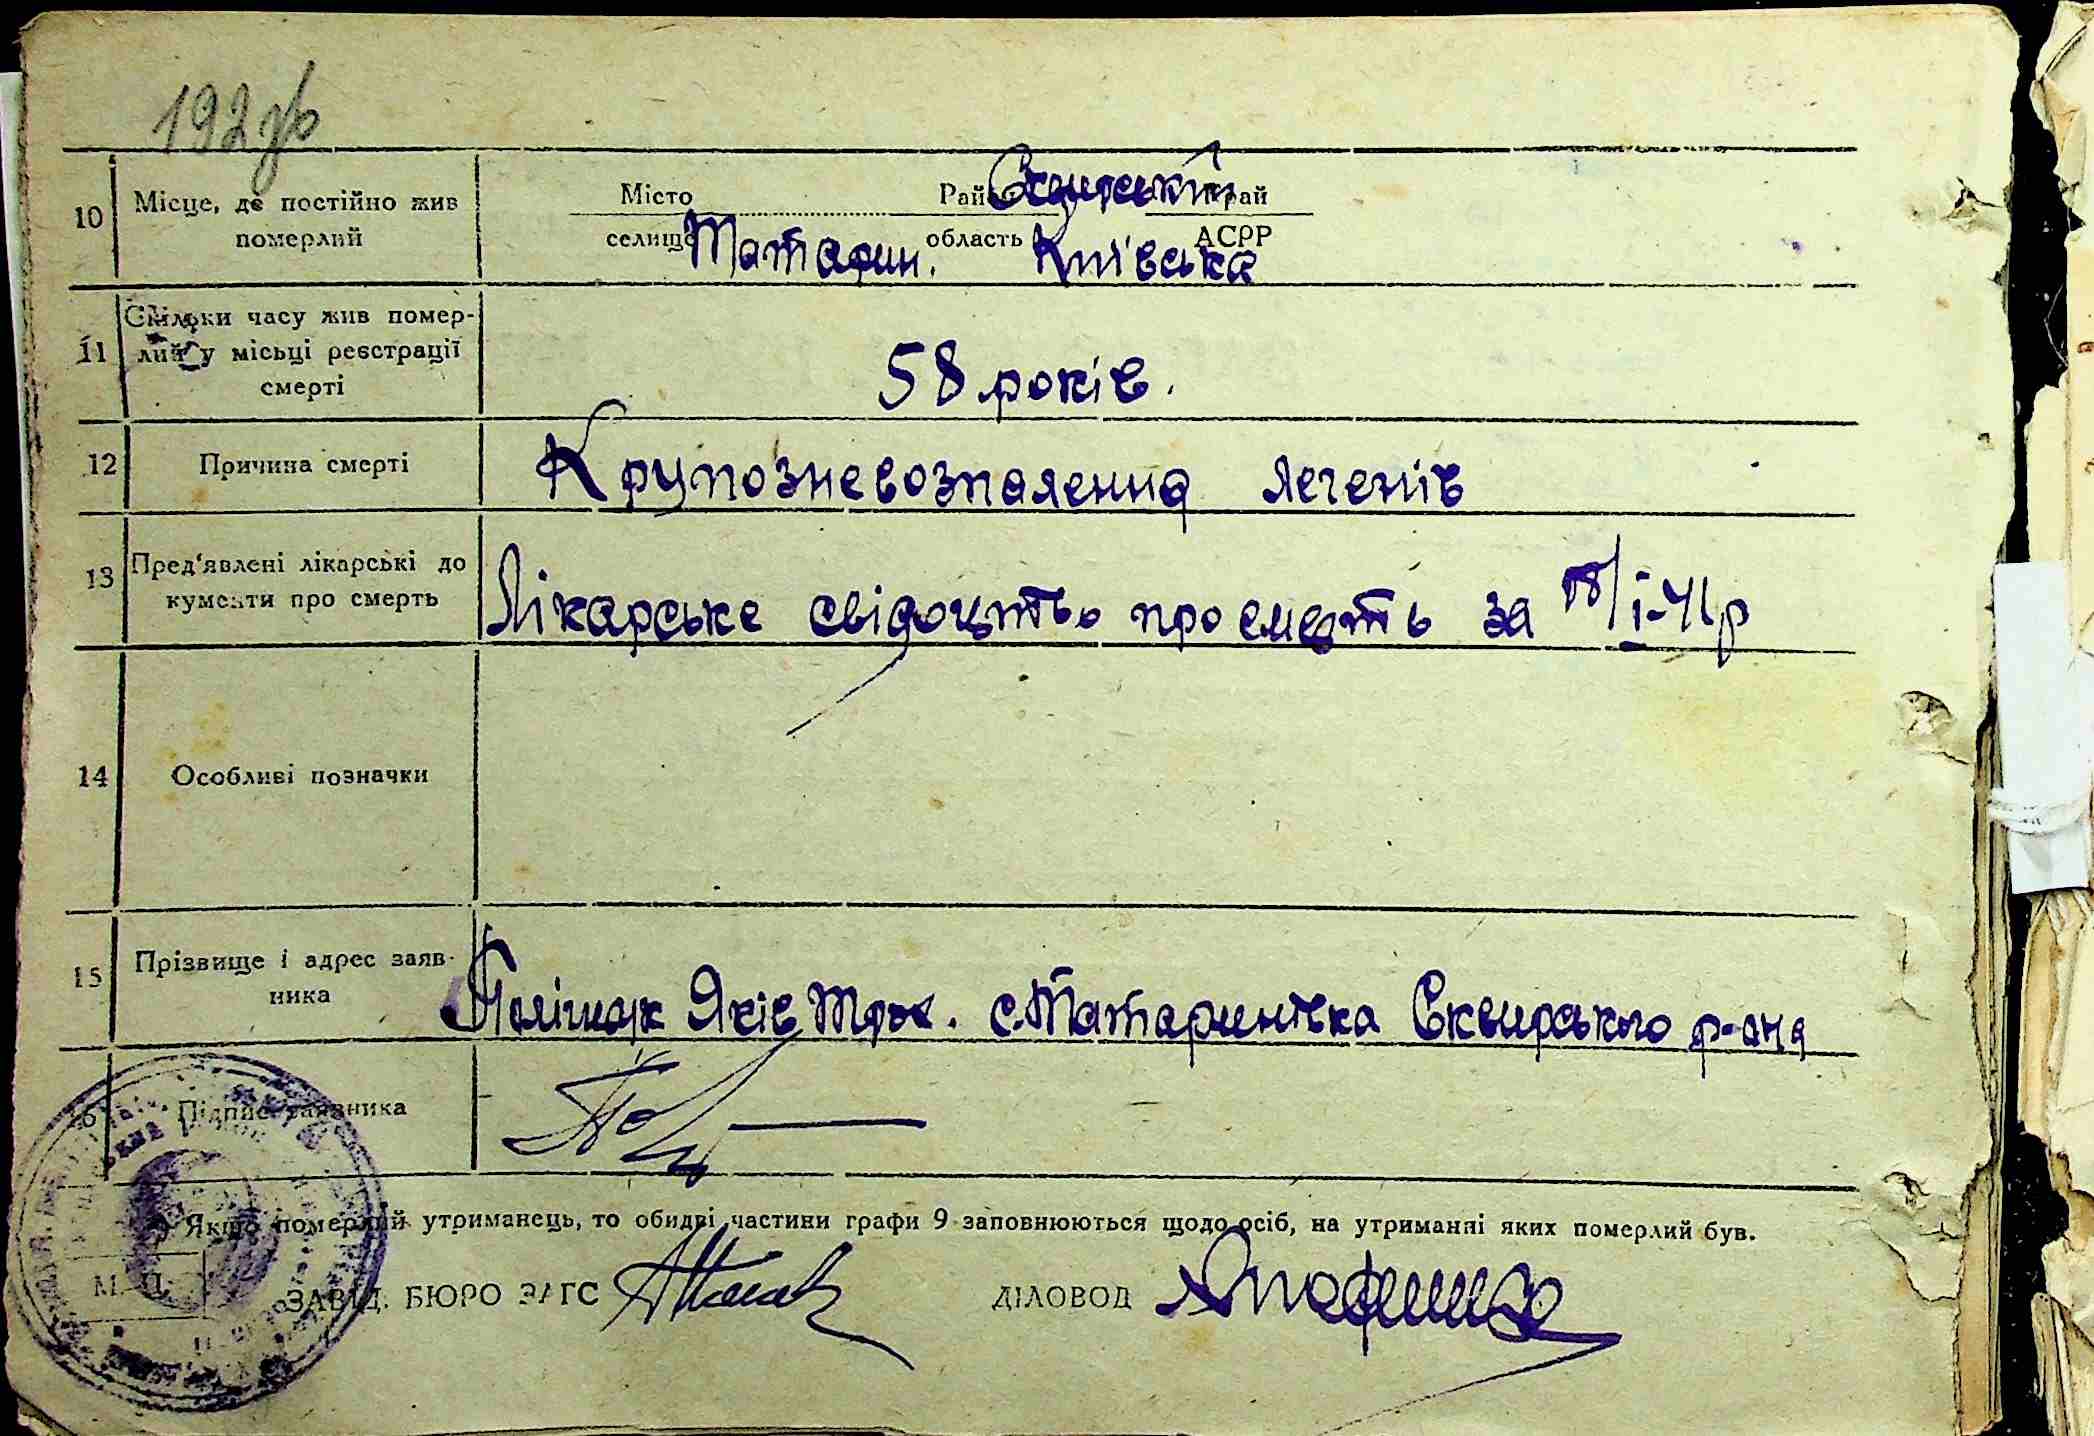 192 зв
10 Місце, де постійно жив померлий
Місто Район Сквирський Край
селище Татарин. область Київська АСРР
11 Скільки часу жив помер-
лий у місьці реєстрації
смерті
58 років.
12 Причина смерті Крупозневозпалення легенів
13 Пред'явлені лікарські до
кументи про смерть
Лікарське свідоцтво про смерть за 18/І-41р
14 Особливі позначки
15 Прізвище і адрес заяв-
ника
Поліщук Яків Троф. с. Татаринівка Сквирського р-она
16 Підпис заявника
*) Якщо померлий утриманець, то обидві частини графи 9 заповнюються щодо осіб, на утриманні яких померлий був.
М. П.
ЗАВІД. БЮРО ЗАГС ДІЛОВОД